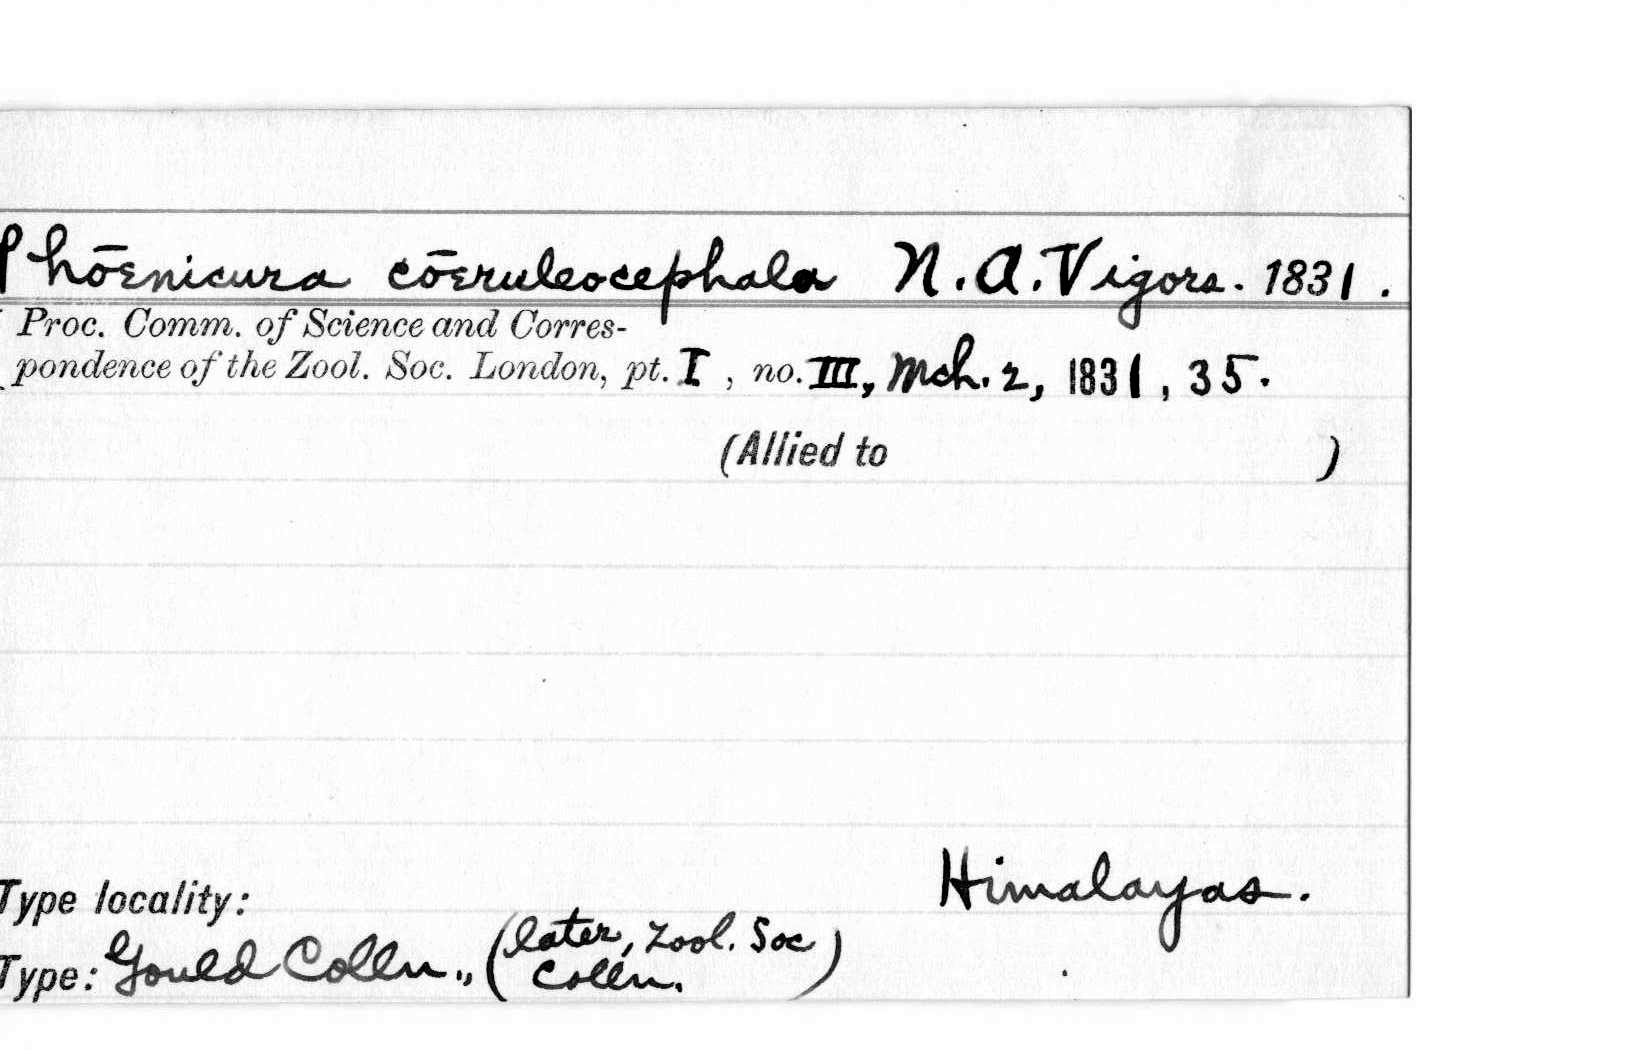 Phōenicura cōeruleocephala N.A.Vigors. 1831.
Proc. Comm. of Science and Corres-
pondence of the Zool. Soc. London, pt. I, no. III, Mch. 2, 1831, 35.
(Allied to )
Himalayas.
Type locality:
Type: Gould Colln., (later, Zool. Soc
Colln.)